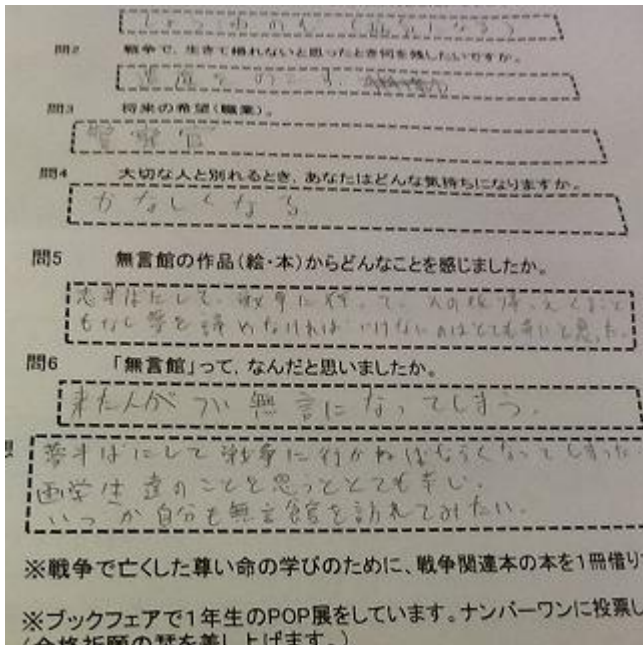 問2 戦争で、生きて帰れないと思ったとき何を残したいですか。
問3 将来の希望(職業)。
警察官
問4 大切な人と別れるとき、あなたはどんな気持ちになりますか。
かなしくなる
問5 無言館の作品(絵・本)からどんなことを感じましたか。
志半ばにして、戦争に行って、
を諦めなければいけないのはとても辛いと思った。
問6 「無言館」って、なんだと思いましたか。
来た人がつい無言になってしまう。
想
夢半ばにして戦争に行かねばならなくなってしまった
画学生達のことを思うととても辛い。
いつか自分も無言館を訪れてみたい。
※戦争で亡くした尊い命の学びのために、戦争関連本の本を1冊借り
※ブックフェアで1年生のPOP展をしています。ナンバーワンに投票し
(合格祈願の栞を差し上げます。)